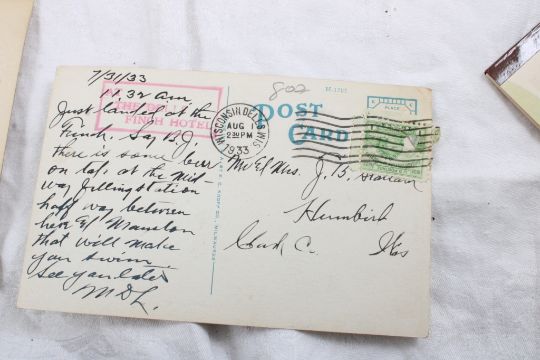 7/31/33
11.32 am.
Just landed at the
Finch. Say B.J.
there is some beer
on tap at the Mid-
way filling station
half way between
here & Mauston
that will make
you swim
see you later
MDL.
THE
FINCH HOTEL
802
POST
CARD
PLACE
WISCONSIN DELLS WIS
AUG 1
2 30 PM
1933
Mr & Mrs. J. B.
Humbird
Clark Co. Wis